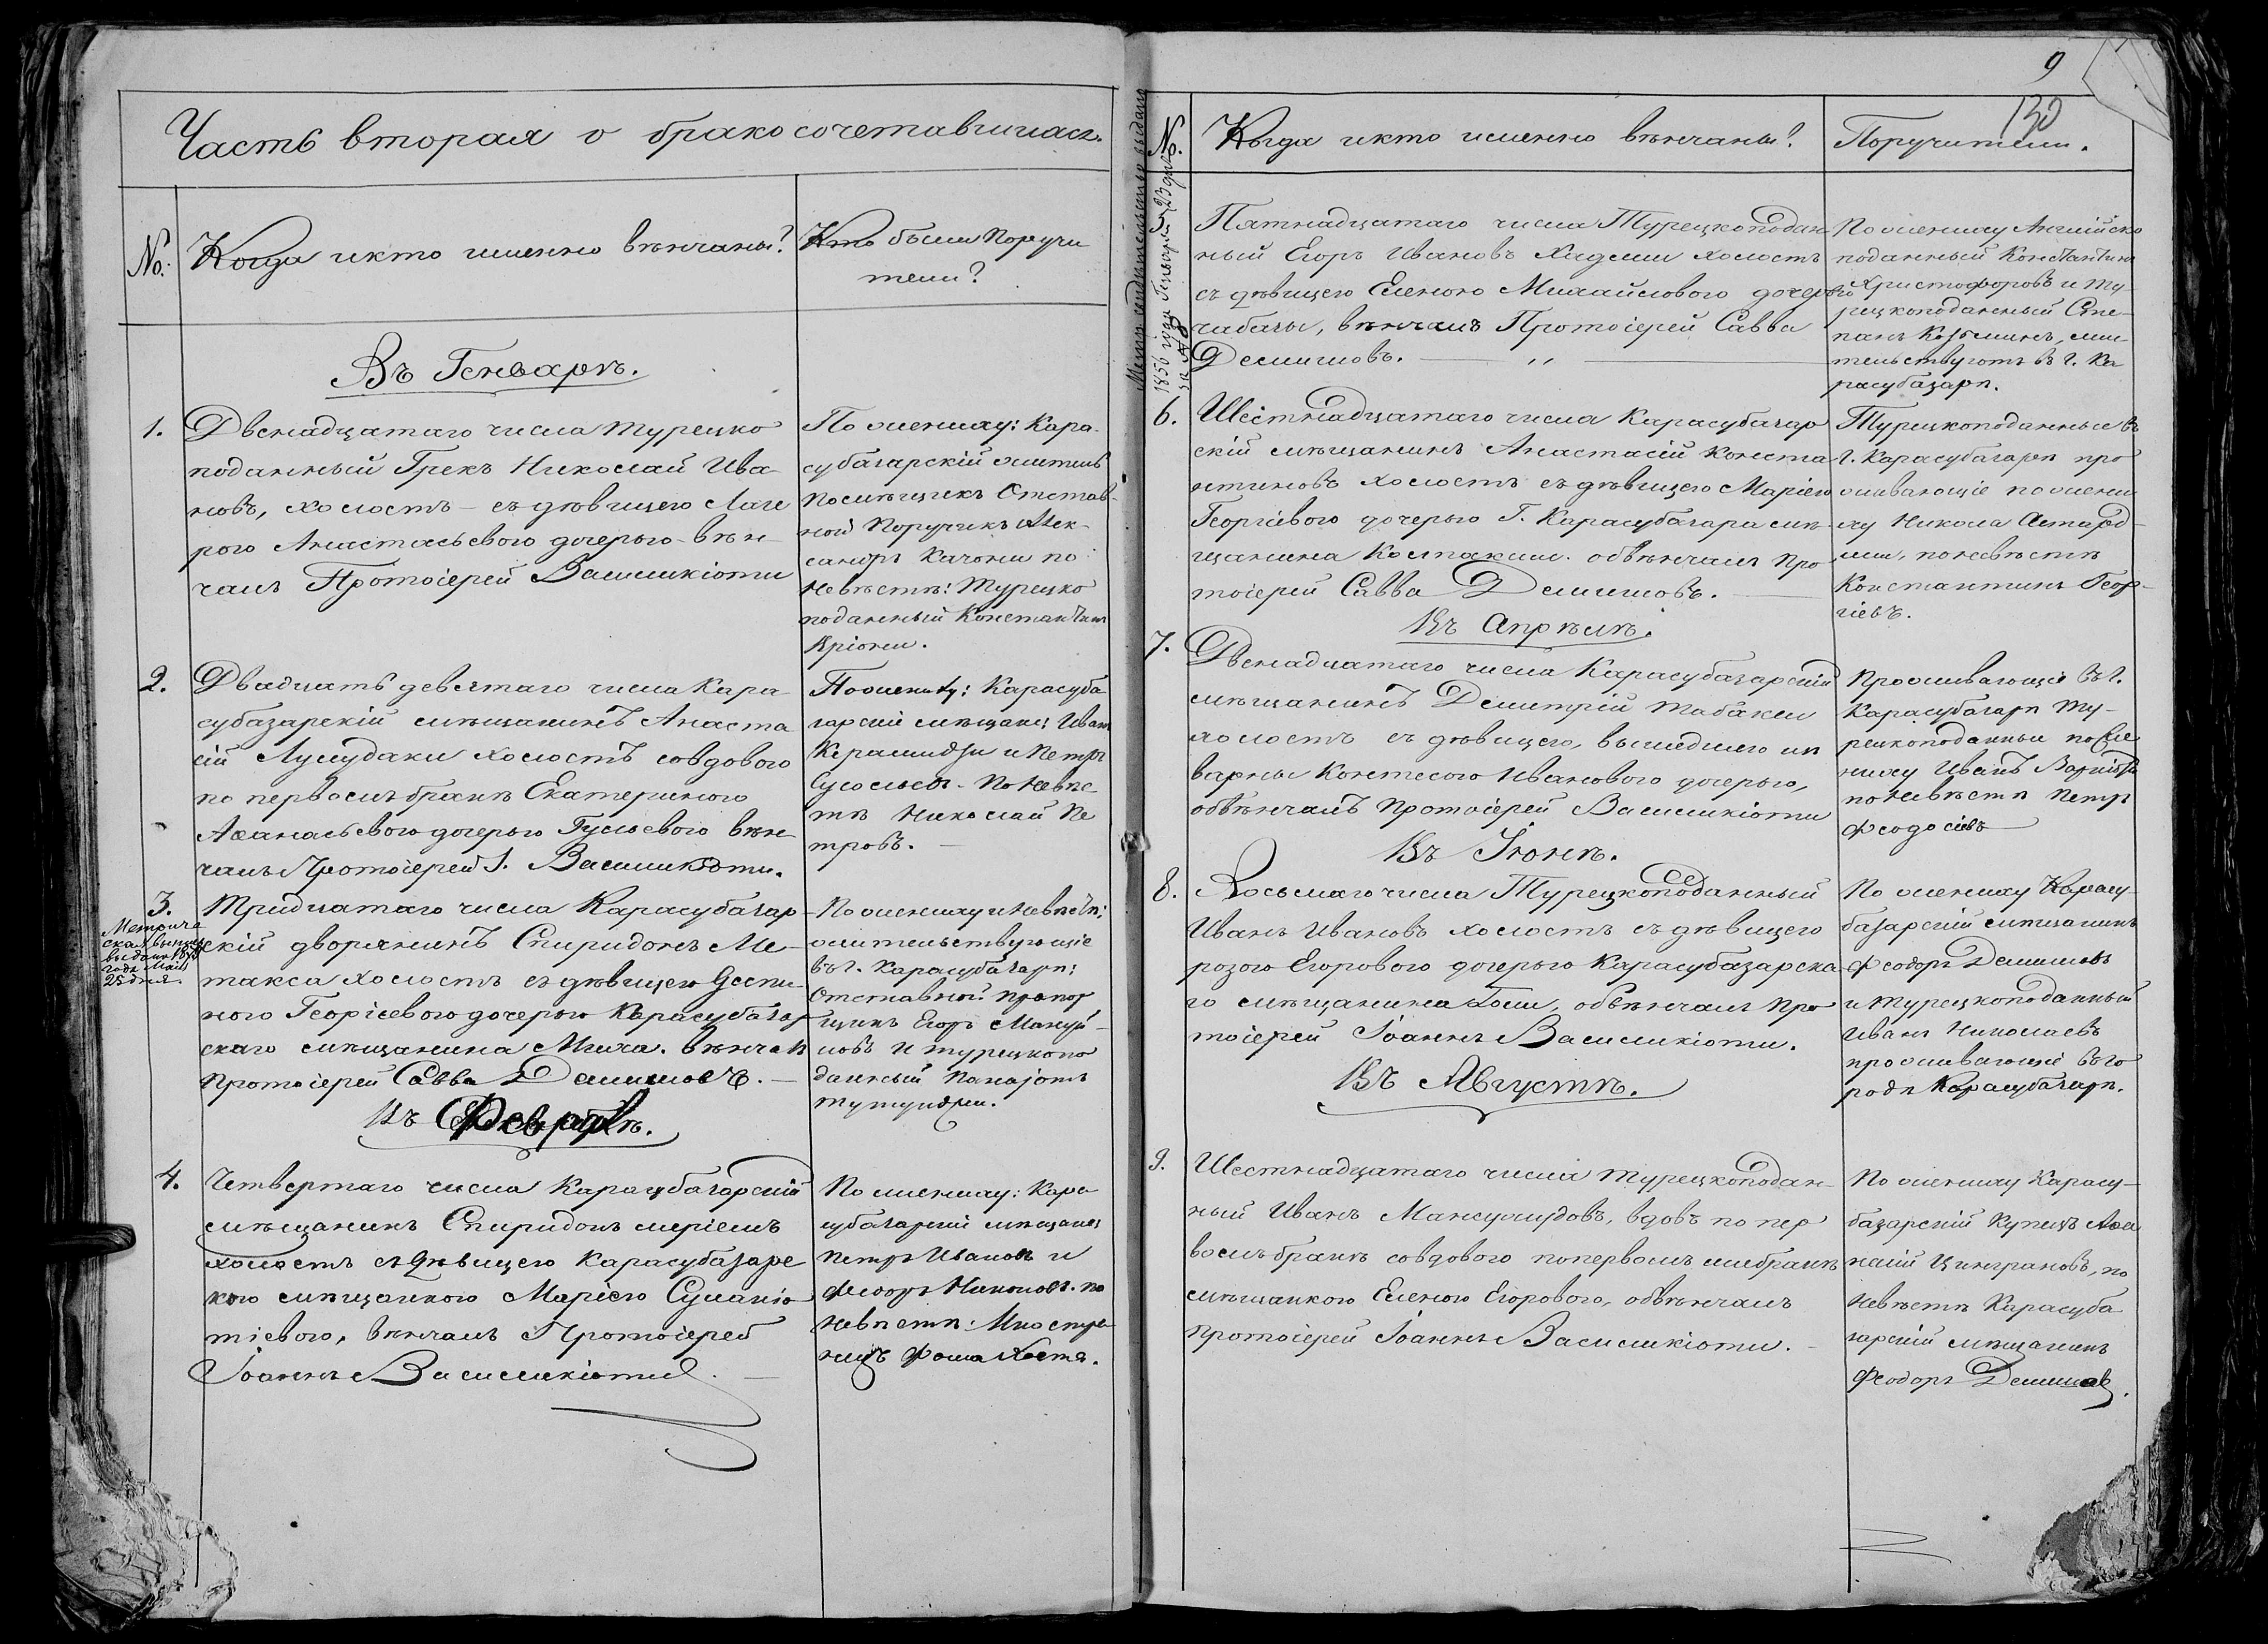 Часть вторая о бракосочетавшихся.
№.
Когда и кто именно вѣнчаны?
Кто были Поручи
тели?
Въ Генварѣ.
1.
Двенадцатаго числа турецко
поданный Грекъ Николай Ива-
новъ, холостъ - съ дѣвицею
Анастасьевою дочерью - вѣн-
чалъ Протоіерей Василикіоти
По жениху: Кара-
субазарскій житель
помѣщикъ Отстав-
ной Поручикъ Алек-
сандръ Качони по
невѣстѣ: Турецко
поданный Константинъ
Вріони.
2.
Двадцать девятаго числа Кара-
субазарскій мѣщанинъ Анаста
сій холостъ со вдовою
по первомъ бракѣ Екатериною
Аѳанасьевою дочерью Гусьевою вѣн-
чалъ Протоіерей І. Василикіоти.
По жениху: Карасуба
зарскіе мѣщане: Иванъ
Керамиджи и Петръ
По невѣс-
тѣ Николай Пе
тровъ.
3.
Метриче
ская выпись
выдана
года Маія
25 дня.
Тридцатаго числа Карасубазар-
скій дворянинъ Спиридонъ Ме-
такса холостъ съ дѣвицею Деспи-
ною Георгіевою дочерью Карасубазар
скаго мѣщанина Мича. вѣнчалъ
Протоіерей Савва Демишовъ.
По жениху и невѣстѣ:
жительствующіе
въ г. Карасубазарѣ:
Отставной прапор
щикъ Егоръ Мануй-
ловъ и турецкопо
данный Панаіотъ
Тутунджи.
Въ Февралѣ.
4.
Четвертаго числа Карасубазарскій
мѣщанинъ Спиридонъ
холостъ съ дѣвицею Карасубазарс
кою мѣщанкою Маріею
вѣнчалъ Протоіерей
Іоаннъ Василикіоти.
По жениху: Кара
субазарскіе мѣщане
Петръ Ивановъ и
Федоръ Никоновъ. по
невѣстѣ: Иностра-
нецъ Фома Костя.
9
130
Метр. свидѣтельство выдано
1856 года Генваря 23 дня
за № 48
№.
Когда и кто именно вѣнчаны?
Поручители.
5.
Пятнадцатаго числа Турецкоподан-
ный Егоръ Ивановъ Хаджи холостъ
съ дѣвицею Еленою Михайловою дочерью
чабачы, вѣнчалъ Протоіерей Савва
Демишовъ.
По жениху Англійско
поданный Константинъ
Христофоровъ и ту-
рецкоподанный Сте-
панъ Козьминъ, жи-
тельствуютъ въ г. Ка
расубазарѣ.
6.
Шестнадцатаго числа Карасубазар
скій мѣщанинъ Анастасій Конста
нтиновъ холостъ съ дѣвицею Маріею
Георгіевою дочерью Г. Карасубазара мѣ-
щанина Колпакчи. обвѣнчалъ Про
тоіерей Савва Демишовъ.
Турецкоподанные въ
г. Карасубазарѣ про
живающіе по жени
ху Никола
по невѣстѣ
Константинъ Геор-
гіевъ.
Въ Апрѣлѣ.
7.
Двенадцатаго числа Карасубазарскій
мѣщанинъ Димитрій Табакси
холостъ съ дѣвицею, вышедшею изъ
варны Контесою Ивановою дочерью,
обвѣнчалъ Протоіерей Василикіоти
Проживающіе въ г.
Карасубазарѣ Ту-
рецкоподанные по же
ниху Иванъ
по невѣстѣ Петръ
Феодосіевъ
Въ Іюнѣ.
8.
Восьмаго числа Турецкоподанный
Иванъ Ивановъ холостъ съ дѣвицею
розою Егоровою дочерью Карасубазарска
го мѣщанина обвѣнчалъ Про
тоіерей Іоаннъ Василикіоти.
По жениху Карасу-
базарскій мѣщанинъ
Феодоръ Демишовъ
и турецкоподанный
Иванъ Николаевъ
проживающіе въ го
родѣ Карасубазарѣ.
Въ Августѣ.
9.
Шестнадцатаго числа турецкоподан-
ный Иванъ вдовъ по пер
вомъ бракѣ со вдовою по первомъ же бракѣ
мѣщанкою Еленою Егоровою, обвѣнчалъ
Протоіерей Іоаннъ Василикіоти.
По жениху Карасу-
базарскій Купецъ Аѳа
насій по
невѣстѣ Карасуба
зарскій мѣщанинъ
Феодоръ Демишовъ.